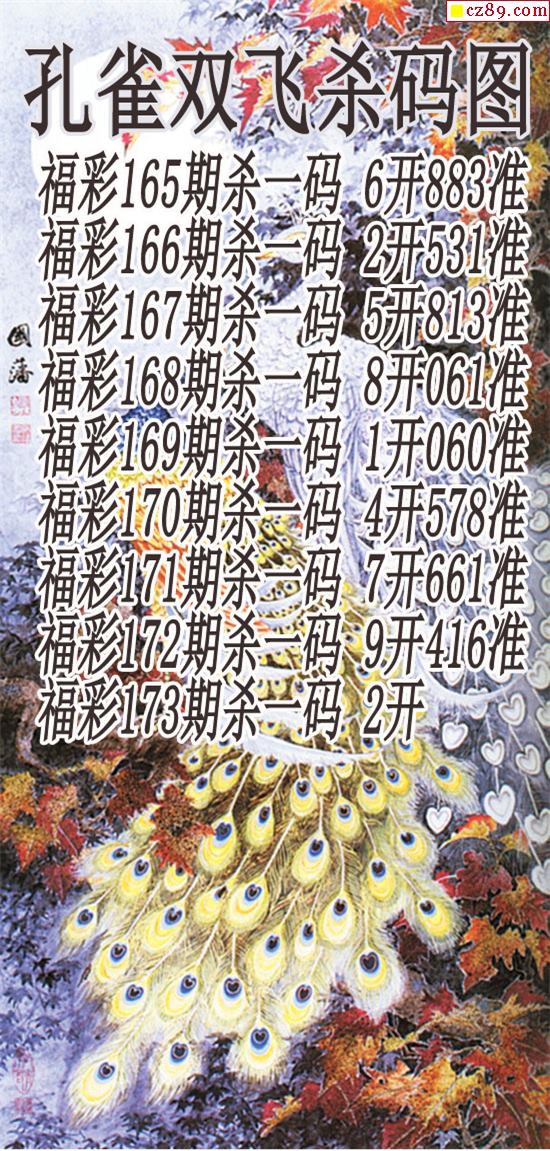 cz89.com
孔雀双飞杀码图
福彩165期杀一码 6开883准
福彩166期杀一码 2开531准
福彩167期杀一码 5开813准
福彩168期杀一码 8开061准
福彩169期杀一码 1开060准
福彩170期杀一码 4开578准
福彩171期杀一码 7开661准
福彩172期杀一码 9开416准
福彩173期杀一码 2开
國藩